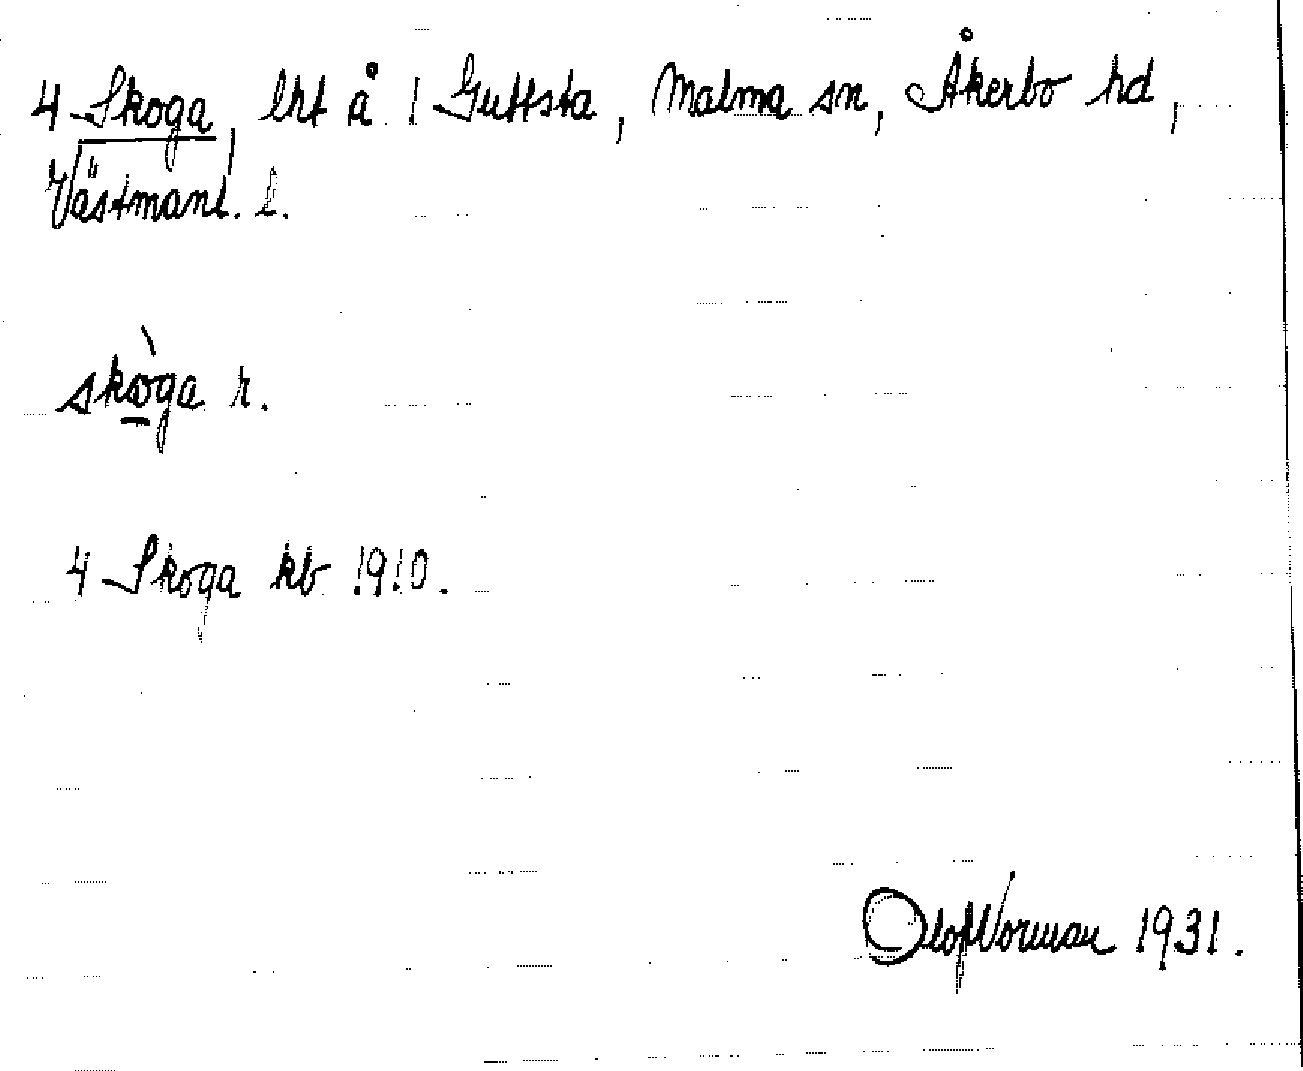 4 Skoga, lht å 1 Guttsta, Malma sn, Åkerbo hd,
Västmanl. l.
skò̠ga r.
4 Skoga kb 1910.
Olof Norman 1931.